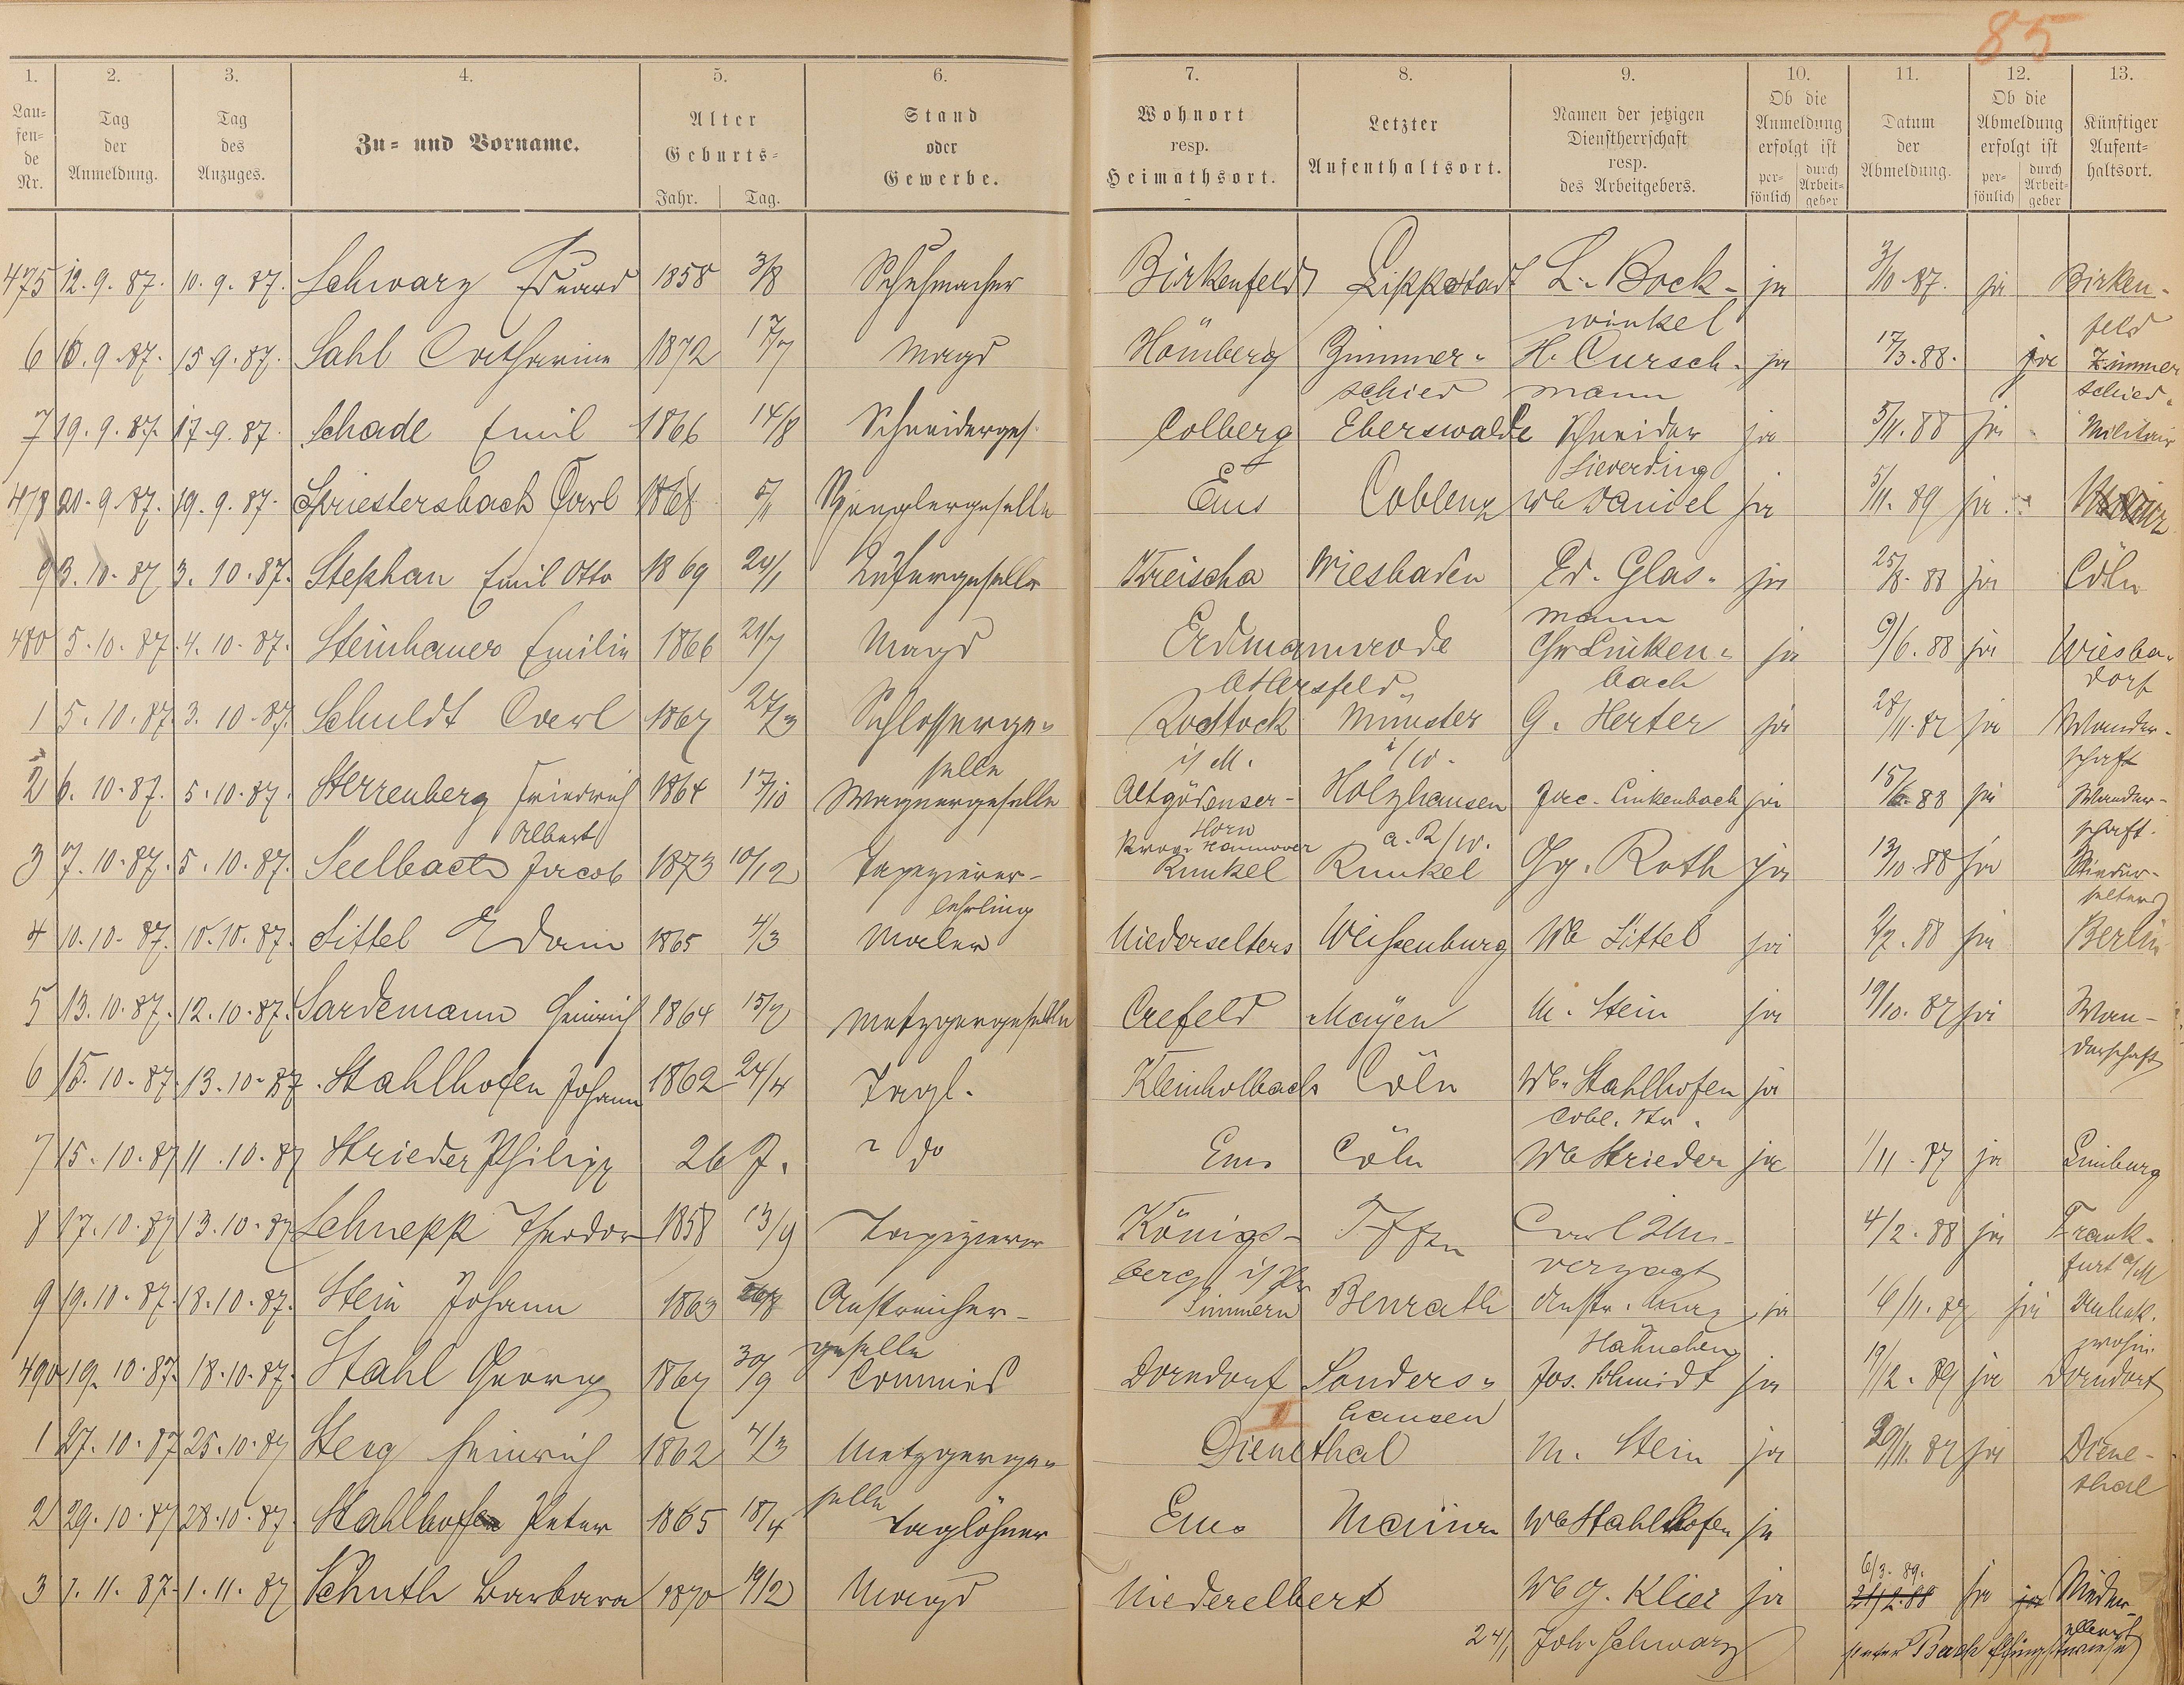 85
1. 2. 3. 4. 5. 6. 7. 8. 9. 10. 11. 12. 13.
Lau=
fen=
de
Nr.
Tag
der
Anmeldung.
Tag
des
Anzuges.
Zu= und Vorname.
Alter
Geburts=
Jahr. Tag.
Stand
oder
Gewerbe.
Wohnort
resp.
Heimathsort.
Letzter
Aufenthaltsort.
Namen der jetzigen
Dienstherrschaft
resp.
des Arbeitgebers.
Ob die
Anmeldung
erfolgt ist
per=
sönlich
durch
Arbeit=
geber
Datum
der
Abmeldung.
Ob die
Abmeldung
erfolgt ist
per=
sönlich
durch
Arbeit=
geber
Künftiger
Aufent=
haltsort.
475 12. 9. 87. 10. 9. 87. Schwarz Eduard 1858 3/8 Schuhmacher Birkenfeld Lippstadt L. Bock- ja 3/10 87. ja Birken-
winkel feld
6 16. 9. 87. 15. 9. 87. Sahl Catharine 1872 17/7 Magd Hömberg Zimmer- H. Cursch- ja 17/3. 88. ja Zimmer
schied mann schied.
7 19. 9. 87. 17. 9. 87. Schade Emil 1866 14/8 Schneiderges. Colberg Eberswalde Schneider ja 5/11. 88 ja Militair
Sieverding
478 20. 9. 87. 19. 9. 87. Spriestersbach Carl 1868 5/11 Spenglergeselle Ems Coblenz Wb Daniel ja 5/11. 89 ja
9 3. 10. 87 3. 10. 87. Stephan Emil Otto 1869 24/1 Küfergeselle Kreischa Wiesbaden Ed. Glas- ja 25/8. 88 ja Cöln
mann
480 5. 10. 87. 4. 10. 87. Steinhauer Emilie 1866 21/7 Magd Erdmannrode Chr Linken- ja 9/6. 88 ja Wiesba-
b/Hersfeld bach dorf
1 5. 10. 87. 3. 10. 87. Schuldt Carl 1867 27/3 Schlosserge- Rostock Münster G. Herter ja 28/11. 87 ja Wander-
selle i/M. i/W. schaft
2 6. 10. 87. 5. 10. 87. Sterrenberg Friedrich 1864 17/10 Wagnergeselle Altgödenser- Holzhausen Jac. Linkenbach ja 15/6. 88 ja Wander-
Albert Horn a. R/W. schaft.
Prov. Hannover
3 7. 10. 87. 5. 10. 87. Seelbach Jacob 1873 10/12 Tapezierer- Runkel Runkel Gg. Roth ja 13/10. 88 ja Nieder-
lehrling selters
4 10. 10. 87. 10. 10. 87. Sittel Edam 1865 4/3 Maler Niederselters Weißenburg Wb Sittel ja 2/7. 88 ja Berlin
5 13. 10. 87. 12. 10. 87. Sardemann Heinrich 1864 15/7 Metzgergeselle Crefeld Mayen M. Stein ja 19/10. 87 ja Wan-
derschaft
6 15. 10. 87. 13. 10. 87. Stahlhofen Johann 1862 24/4 Tagl. Kleinholbach Cöln Wb. Stahlhofen ja
Cobl. Str.
7 15. 10. 87 11. 10. 87 Strieder Philipp 26 J. " do Ems Cöln Wb Strieder ja 1/11. 87 ja Limburg
8 17. 10. 87 13. 10. 87 Schnepp Theodor 1858 13/9 Tapezierer Königs- Carl Un- 4/2. 88 ja Frank-
berg i/Pr verzagt furt a/M
9 19. 10. 87. 18. 10. 87. Stein Johann 1863 Anstreicher- Simmern Benrath Anstr. ja 16/11. 87 ja Unbek.
geselle Hähnchen wohin.
490 19. 10. 87. 18. 10. 87. Stahl Georg 1867 30/9 Commis Dorndorf Sonders- Jos. Schmidt ja 19/12. 89 ja Dorndorf
II hausen
1 27. 10. 87 25. 10. 87 Steeg Heinrich 1862 4/3 Metzgerge- Dienethal M. Stein ja 20/11. 87 ja Diene-
selle thal
2 29. 10. 87 28. 10. 87. Stahlhofen Peter 1865 18/4 Taglöhner Ems Mainz Wb Stahlhofen ja
3 1. 11. 87. 1. 11. 87 Schuth Barbara 1870 19/12 Magd Niederelbert Wb G. Klier ja 6/3. 89. ja ja Nieder-
21/2. 88 elbert
24/1 Joh. Schwarz